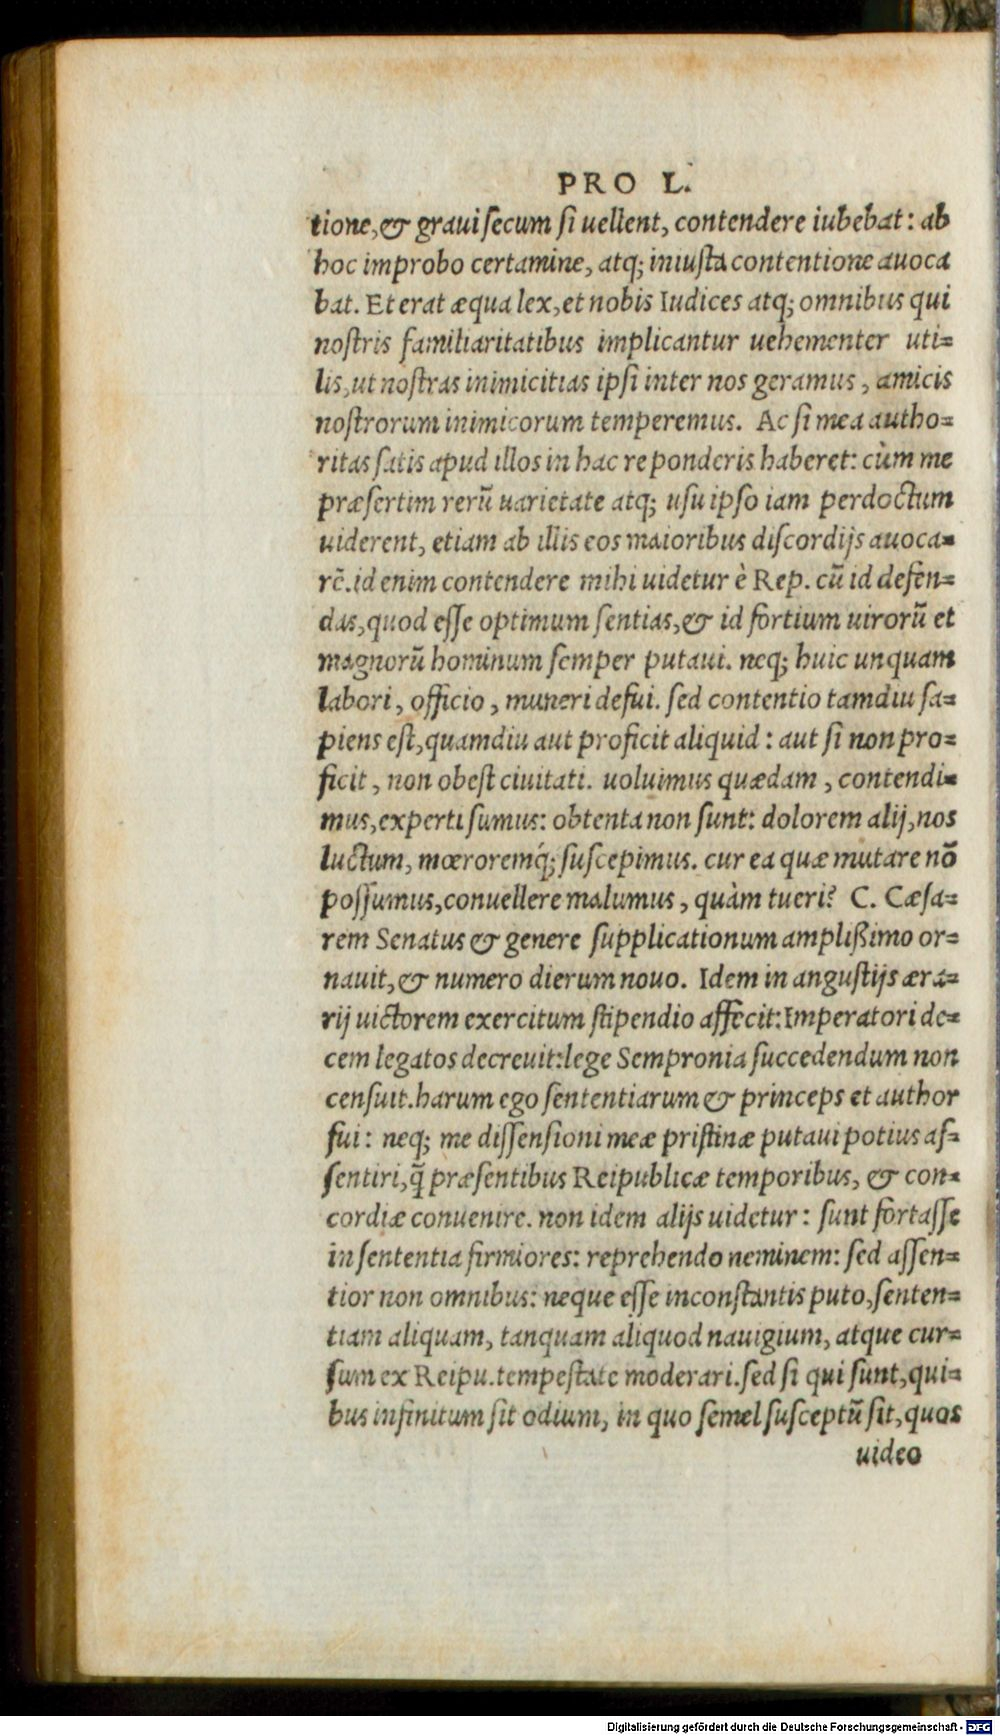 PRO L.
tione,& graui secum si uellent, contendere iubebat: ab
hoc improbo certamine, atq; iniusta contentione auoca
bat. Et erat æqua lex, et nobis Iudices atq; omnibus qui
nostris familiaritatibus implicantur uehementer uti=
lis, ut nostras inimicitias ipsi inter nos geramus, amicis
nostrorum inimicorum temperemus. Ac si mea autho=
ritas satis apud illos in hac re ponderis haberet: cùm me
præsertim rerū uarietate atq; usu ipso iam perdoctum
uiderent, etiam ab illis eos maioribus discordijs auoca=
rē. id enim contendere mihi uidetur è Rep. cū id defen=
das, quod esse optimum sentias, & id fortium uirorū et
magnorū hominum semper putaui. neq; huic unquam
labori, officio, muneri defui. sed contentio tamdiu sa=
piens est, quamdiu aut proficit aliquid: aut si non pro=
ficit, non obest ciuitati. uoluimus quædam, contendi=
mus, experti sumus: obtenta non sunt: dolorem alij, nos
luctum, mœroremq́; suscepimus. cur ea quæ mutare nō
possumus, conuellere malumus, quàm tueri? C. Cæsa=
rem Senatus & genere supplicationum amplißimo or=
nauit, & numero dierum nouo. Idem in angustijs æra=
rij uictorem exercitum stipendio affecit: Imperatori de=
cem legatos decreuit: lege Sempronia succedendum non
censuit. harum ego sententiarum & princeps et author
fui: neq; me dissensioni meæ pristinæ putaui potius as=
sentiri, q̃ præsentibus Reipublicæ temporibus, & con=
cordiæ conuenire. non idem alijs uidetur: sunt fortasse
in sententia firmiores: reprehendo neminem: sed assen=
tior non omnibus: neque esse inconstantis puto, senten=
tiam aliquam, tanquam aliquod nauigium, atque cur=
sum ex Reipu. tempestate moderari. sed si qui sunt, qui=
bus infinitum sit odium, in quo semel susceptū sit, quos
uideo
Digitalisierung gefördert durch die Deutsche Forschungsgemeinschaft - DFG